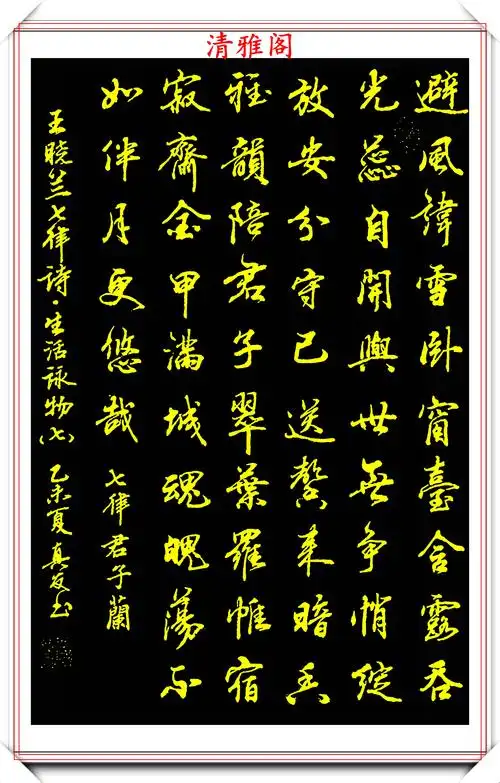 清雅阁
避風諱雪卧窗臺含露吞
光蕊自開與世無爭悄綻
放安分守己送馨来暗香
雅韻陪君子翠葉羅帷宿
寂齋金甲滿城魂魄蕩不
如伴月更悠哉 七律君子蘭
王晓兰七律詩·生活詠物(七) 乙未夏真友书